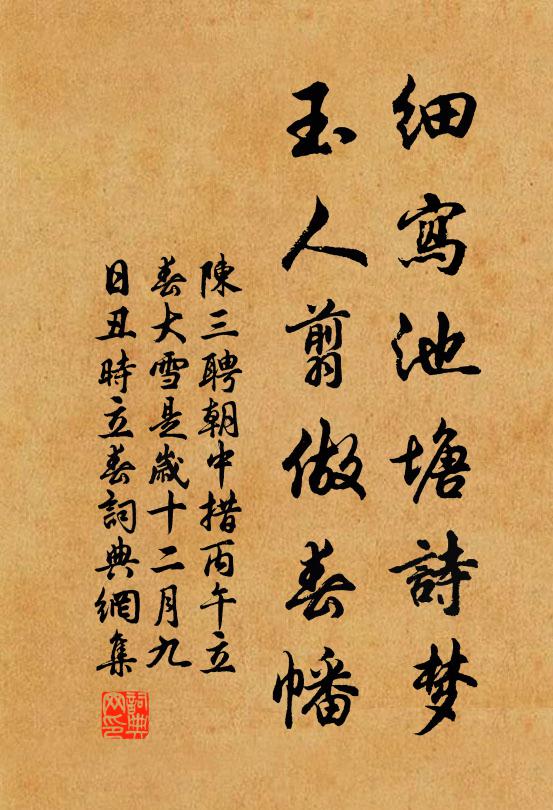 細寫池塘詩梦
玉人翦做春幡
陳三聘朝中措丙午立
春大雪是歲十二月九
日丑時立春詞典網集
詞典
网印